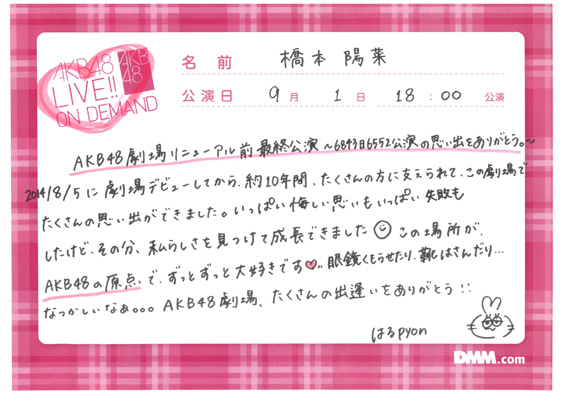 AKB48
LIVE!!
ON DEMAND
AKB
48
名前 橋本 陽菜
公演日 9月 1日 18:00 公演
AKB48劇場リニューアル前最終公演 ~6843日6552公演の思い出をありがとう。~
2014/8/5に劇場デビューしてから、約10年間、たくさんの方に支えられて、この劇場で
たくさんの思い出ができました。いっぱい悔しい思いもいっぱい失敗も
したけど、その分、私らしさを見つけて成長できました この場所が、
AKB48の原点で、ずっとずっと大好きです 眼鏡くもらせたり、靴はさんだり...
なつかしいなぁ。。。AKB48劇場、たくさんの出逢いをありがとう!!
はるpyon
DMM.com